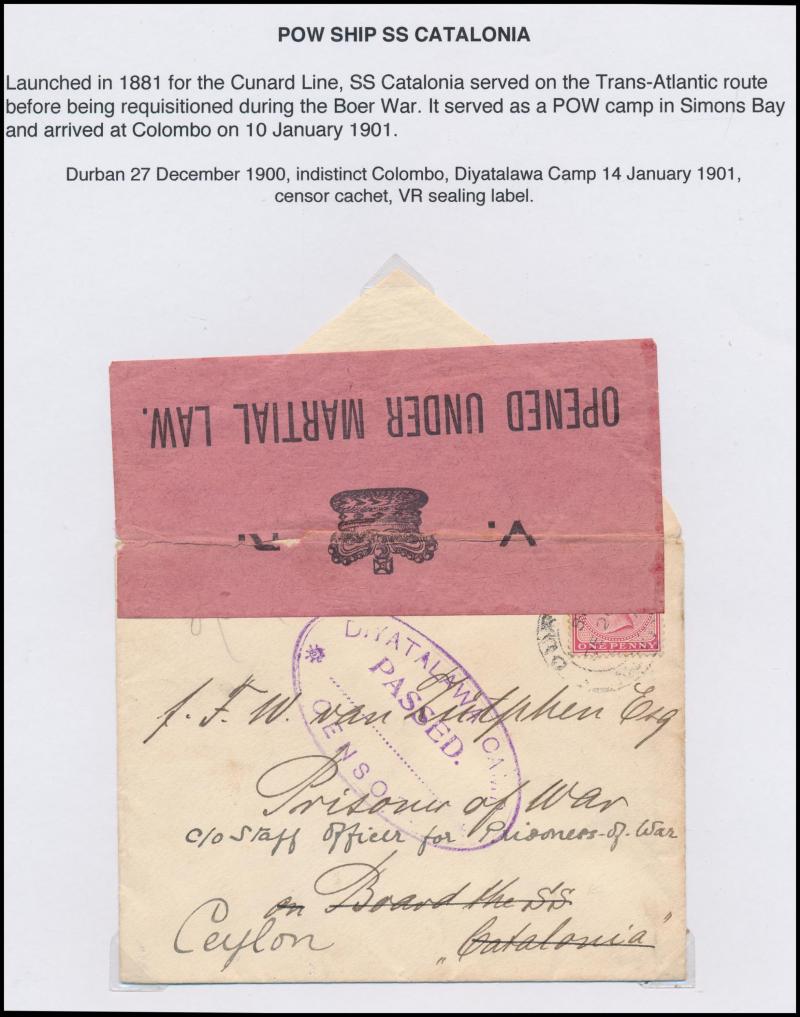 POW SHIP SS CATALONIA
Launched in 1881 for the Cunard Line, SS Catalonia served on the Trans-Atlantic route
before being requisitioned during the Boer War. It served as a POW camp in Simons Bay
and arrived at Colombo on 10 January 1901.
Durban 27 December 1900, indistinct Colombo, Diyatalawa Camp 14 January 1901,
censor cachet, VR sealing label.
OPENED UNDER MARTIAL LAW.
V. R.
ONE PENNY
DIYATALAWA CAMP
PASSED.
CENSOR
J. F. W. van Zutphen Esq
Prisoner of War
c/o Staff Officer for Prisoners-of-War
on Board the SS
Ceylon
"Catalonia"